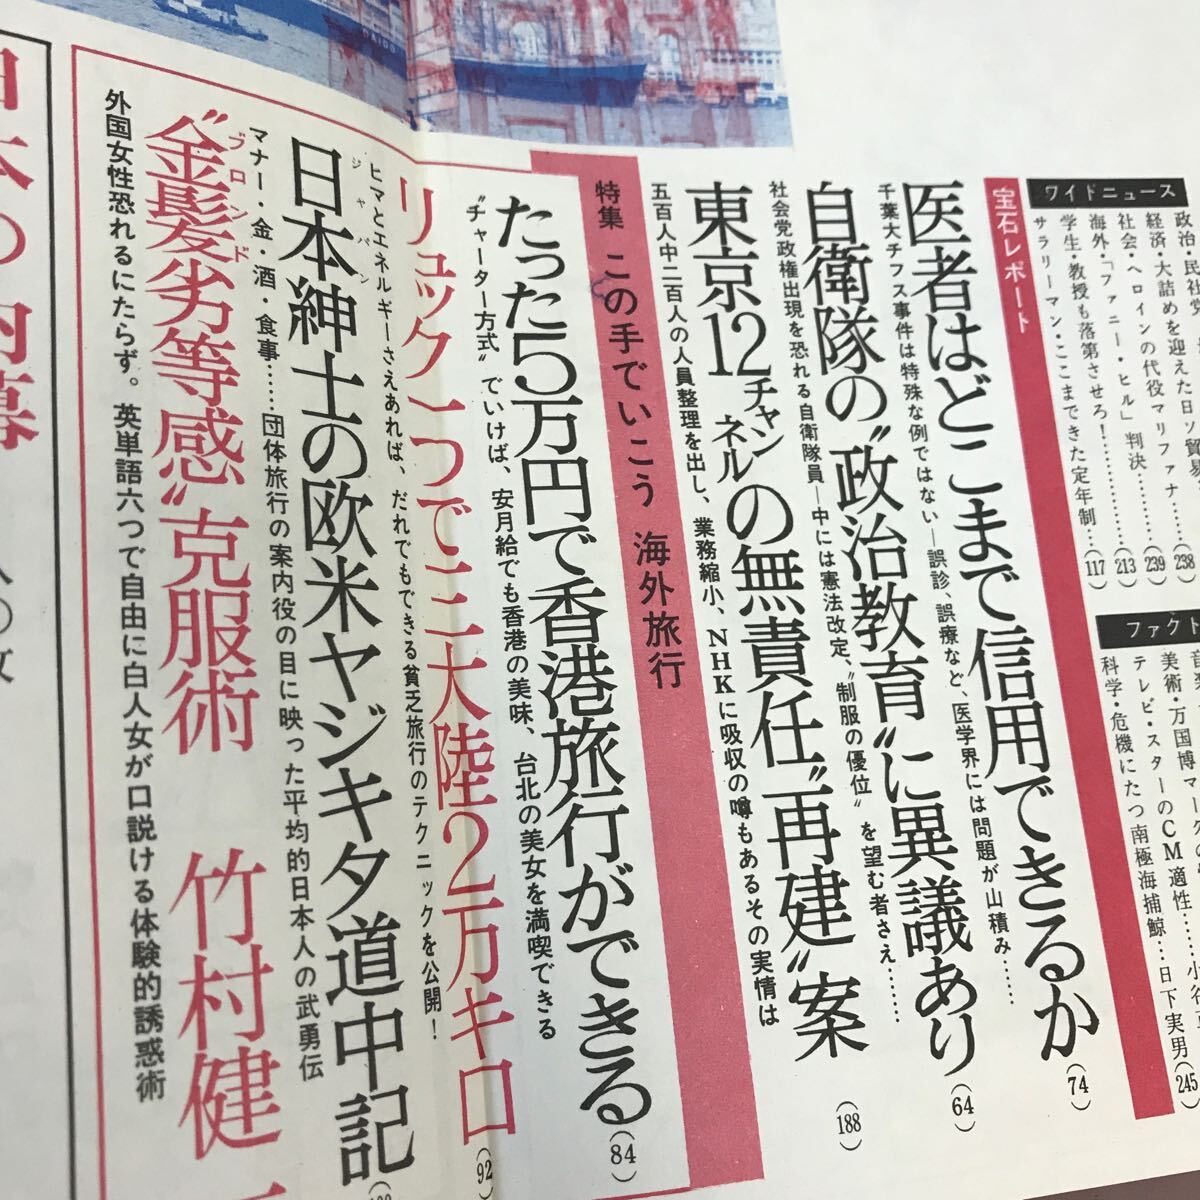 ワイドニュース
政治・民社党
経済・大詰めを迎えた日ソ貿易……(238)
社会・ヘロインの代役マリファナ……(239)
海外・「ファニー・ヒル」判決…………(213)
学生・教授も落第させろ!…………
サラリーマン・ここまできた定年制…(117)
ファクト
美術・万国博マ
テレビ・スターのCM適性……小谷
科学・危機にたつ南極海捕鯨…日下実男(245)
宝石レポート
医者はどこまで信用できるか(74)
千葉大チフス事件は特殊な例ではない―誤診、誤療など、医学界には問題が山積み……
自衛隊の“政治教育”に異議あり(64)
社会党政権出現を恐れる自衛隊員―中には憲法改定、“制服の優位”を望む者さえ……
東京12チャンネルの無責任“再建”案(188)
五百人中二百人の人員整理を出し、業務縮小、NHKに吸収の噂もあるその実情は
特集 この手でいこう 海外旅行
たった5万円で香港旅行ができる(84)
“チャーター方式”でいけば、安月給でも香港の美味、台北の美女を満喫できる
リュック一つで三大陸2万キロ(92)
ヒマとエネルギーさえあれば、だれでもできる貧乏旅行のテクニックを公開!
日本紳士の欧米ヤジキタ道中記
ジャパン
マナー・金・酒・食事……団体旅行の案内役の目に映った平均的日本人の武勇伝
“金髪劣等感”克服術 竹村健一
ブロンド
外国女性恐れるにたらず。英単語六つで自由に白人女が口説ける体験的誘惑術
日本の内幕